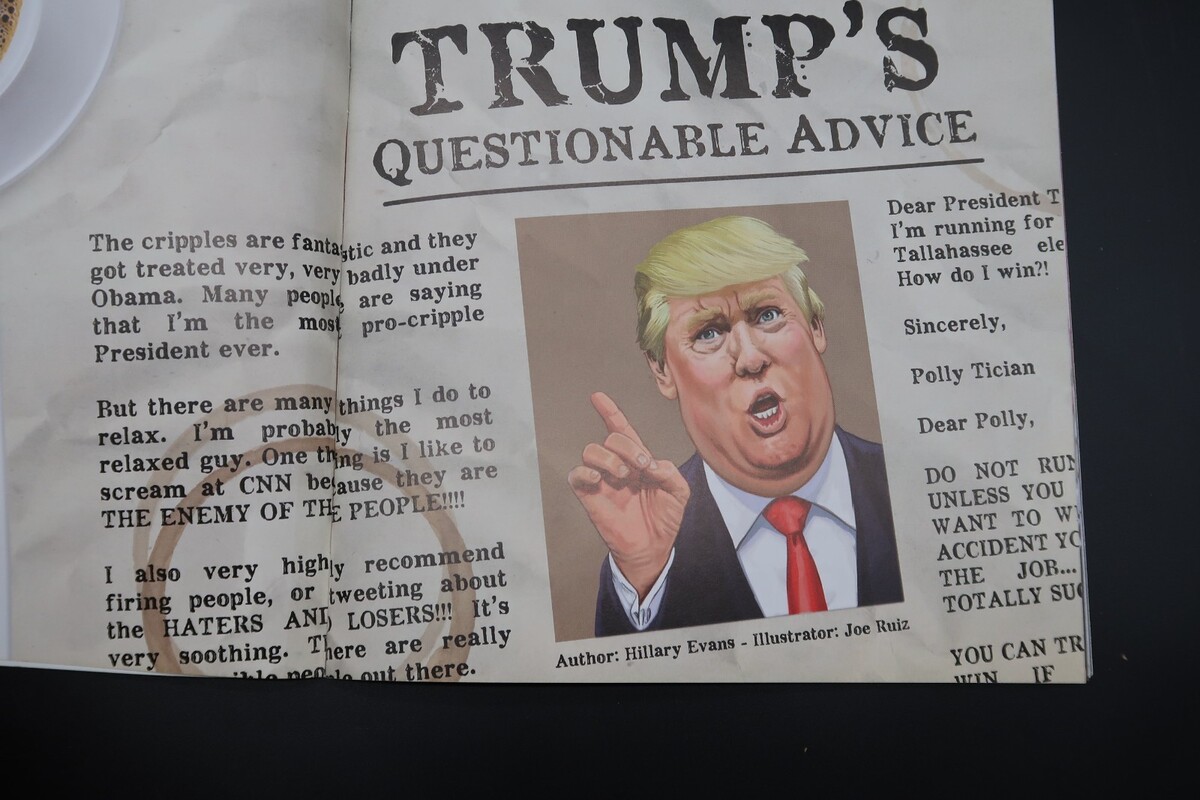 TRUMP'S
QUESTIONABLE ADVICE
The cripples are fantastic and they
got treated very, very badly under
Obama. Many people are saying
that I'm the most pro-cripple
President ever.
But there are many things I do to
relax. I'm probably the most
relaxed guy. One thing is I like to
scream at CNN because they are
THE ENEMY OF THE PEOPLE!!!!
I also very highly recommend
firing people, or tweeting about
the HATERS AND LOSERS!!! It's
very soothing. There are really
people out there.
Author: Hillary Evans - Illustrator: Joe Ruiz
Dear President T
I'm running for
Tallahassee ele
How do I win?!
Sincerely,
Polly Tician
Dear Polly,
DO NOT RUN
UNLESS YOU
WANT TO W
ACCIDENT YO
THE JOB...
TOTALLY SUC
YOU CAN TR
WIN IF